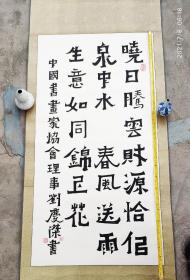 曉日騰雲財源恰佀
泉中水 春風送雨
生意如同錦上花
中國書畫家協會理事劉慶傑書